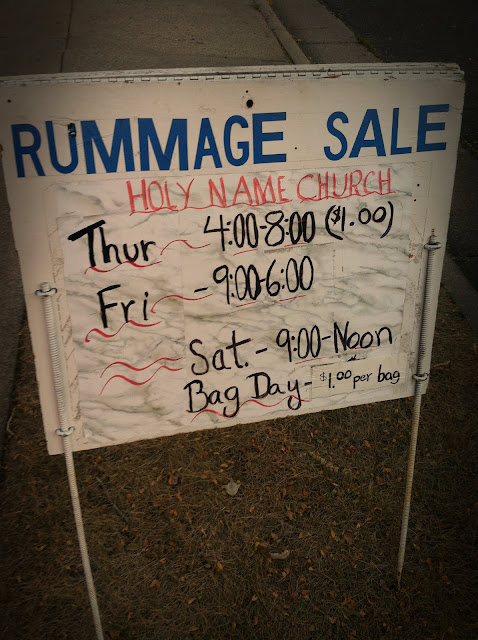 RUMMAGE SALE
HOLY NAME CHURCH
Thur - 4:00-8:00 ($1.00)
Fri - 9:00-6:00
Sat. - 9:00-Noon
Bag Day - $1.00 per bag